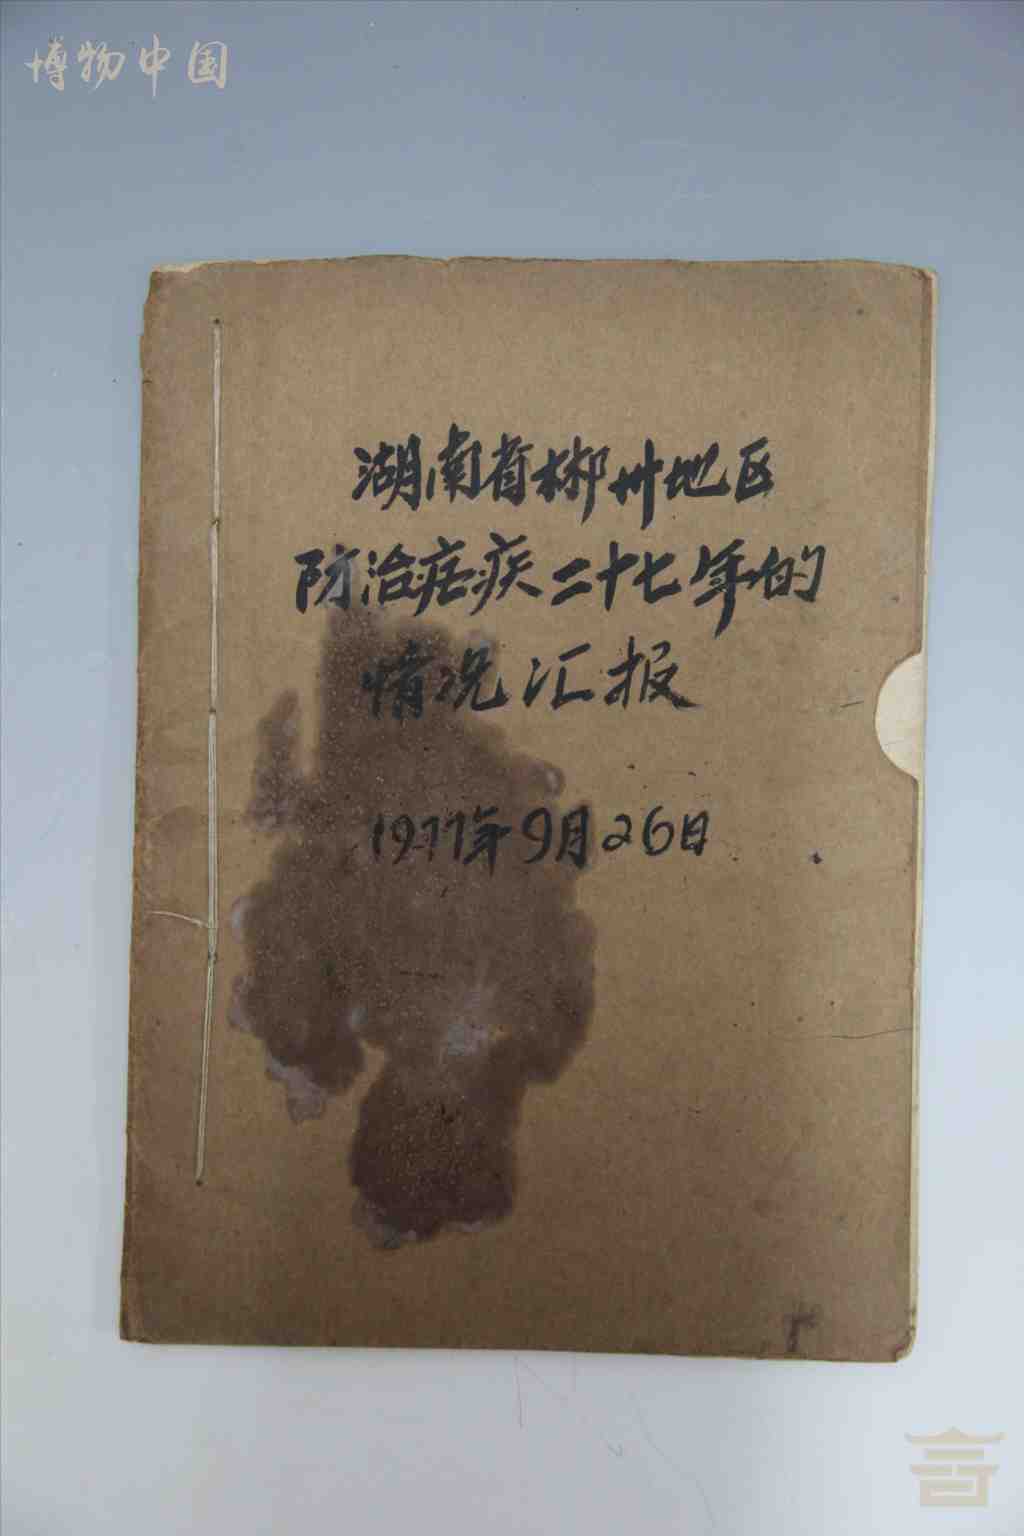 博物中国
湖南省郴州地区
防治疟疾二十七年的
情况汇报
1977年9月26日